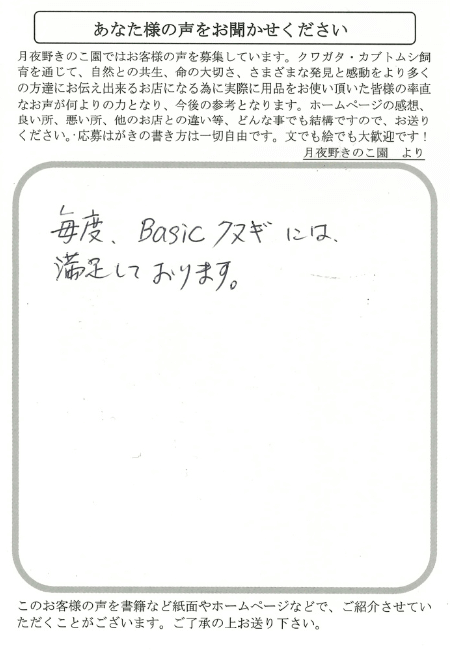 あなた様の声をお聞かせください
月夜野きのこ園ではお客様の声を募集しています。クワガタ・カブトムシ飼
育を通じて、自然との共生、命の大切さ、さまざまな発見と感動をより多く
の方達にお伝え出来るお店になる為に実際に用品をお使い頂いた皆様の率直
なお声が何よりの力となり、今後の参考となります。ホームページの感想、
良い所、悪い所、他のお店との違い等、どんな事でも結構ですので、お送り
ください。応募はがきの書き方は一切自由です。文でも絵でも大歓迎です！
月夜野きのこ園　より
毎度、Basicクヌギには、
満足しております。
このお客様の声を書籍など紙面やホームページなどで、ご紹介させてい
ただくことがございます。ご了承の上お送り下さい。